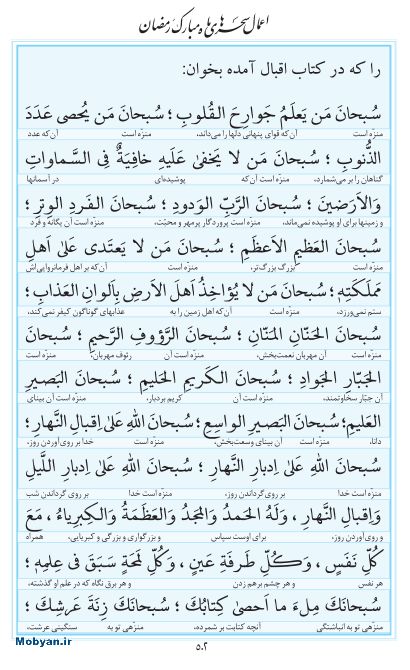 اعمال سحرهای ماه مبارک رمضان
را که در کتاب اقبال آمده بخوان:
سُبحانَ مَن یَعلَمُ جَوارِحَ القُلوبِ ؛ سُبحانَ مَن یُحصی عَدَدَ
منزّه است آن‌که قوای پنهانی دلها را می‌داند، منزّه است آن‌که عدد
الذُّنوبِ ؛ سُبحانَ مَن لا یَخفیٰ عَلَیهِ خافِیَةٌ فِی السَّماواتِ
گناهان را بر می‌شمارد، منزّه است آن‌که پوشیده‌ای در آسمانها
وَالاَرَضینَ ؛ سُبحانَ الرَّبِّ الوَدودِ ؛ سُبحانَ الفَردِ الوِترِ ؛
و زمینها برای او پوشیده نمی‌ماند، منزّه است پروردگار پرمهر و محبّت، منزّه است آن یگانه و فرد
سُبحانَ العَظیمِ الاَعظَمِ ؛ سُبحانَ مَن لا یَعتَدی عَلیٰ اَهلِ
منزّه است بزرگ بزرگ‌تر، منزّه است آن‌که بر اهل فرمانروایی‌اش
مَملَکَتِهِ ؛ سُبحانَ مَن لا یُؤاخِذُ اَهلَ الاَرضِ بِاَلوانِ العَذابِ ؛
ستم نمی‌ورزد، منزّه است آن‌که اهل زمین را به عذابهای گوناگون کیفر نمی‌کند،
سُبحانَ الحَنّانِ المَنّانِ ؛ سُبحانَ الرَّؤوفِ الرَّحیمِ ؛ سُبحانَ
منزّه است آن مهربان نعمت‌بخش، منزّه است آن رئوف مهربان، منزّه است
الجَبّارِ الجَوادِ ؛ سُبحانَ الکَریمِ الحَلیمِ ؛ سُبحانَ البَصیرِ
آن جبّار سخاوتمند، منزّه است آن کریم بردبار، منزّه است آن بینای
العَلیمِ؛ سُبحانَ البَصیرِ الواسِعِ ؛ سُبحانَ اللّٰهِ عَلیٰ اِقبالِ النَّهارِ ؛
دانا، منزّه است آن بینای وسعت‌بخش، منزّه است خدا بر روی‌آوردن روز،
سُبحانَ اللّٰهِ عَلیٰ اِدبارِ النَّهارِ ؛ سُبحانَ اللّٰهِ عَلیٰ اِدبارِ اللَّیلِ
منزّه است خدا بر روی‌گرداندن روز، منزّه است خدا بر روی گرداندن شب
وَاِقبالِ النَّهارِ ، وَلَهُ الحَمدُ وَالمَجدُ وَالعَظَمَةُ وَالکِبرِیاءُ ، مَعَ
و روی‌آوردن روز، برای اوست سپاس و بزرگواری و بزرگی و کبریایی، همراه
کُلِّ نَفَسٍ ، وَکُلِّ طَرفَةِ عَینٍ ، وَکُلِّ لَمحَةٍ سَبَقَ فی عِلمِهِ ؛
هر نفس و هر چشم برهم زدن و هر برق نگاه که در علم او گذشته،
سُبحانَکَ مِلءَ ما اَحصیٰ کِتابُکَ ؛ سُبحانَکَ زِنَةَ عَرشِکَ ؛
منزّهی تو به انباشتگی آنچه کتابت بر شمرده، منزّهی تو به سنگینی عرشت،
۵۰۲
Mobyan.ir